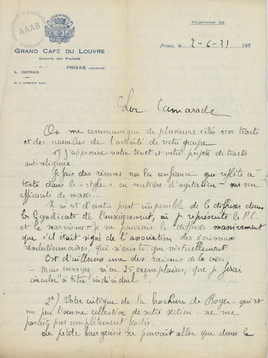 AAAB
TÉLÉPHONE 52
GRAND CAFÉ DU LOUVRE
PRIVAS
L. DEPRAS
Privas, le 2-6-31 193
Cher Camarade
On me communique de plusieurs côtés vos tracts
et des nouvelles de l'activité de votre groupe
1) J'approuve votre tract et votre projet de tracts
anti-religieux.
Je fais des réserves sur la confiance que reflète ce
texte dans le en matière d'agitation -
efficacité de masse.
Il m'est d'autre part impossible de le diffuser dans
le Syndicat de l'enseignement, où je représente le P.C.
et le marxisme. Je ne pourrais le diffuser
que s'il était signé de l'association des écrivains
révolutionnaires, qui n'existe que virtuellement.
C'est d'ailleurs une des raisons de la
mais envoyez m'en 25 exemplaires, que je ferai
circuler à titre individuel.
2°) Votre critique de la brochure de Boyer, qui est
un peu l'œuvre collective de notre section, ne me
paraît pas complètement juste.
La petite bourgeoisie ne pouvait aller que dans le